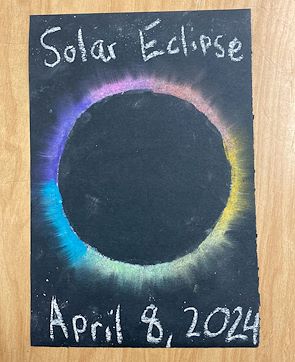 Solar Eclipse
April 8, 2024